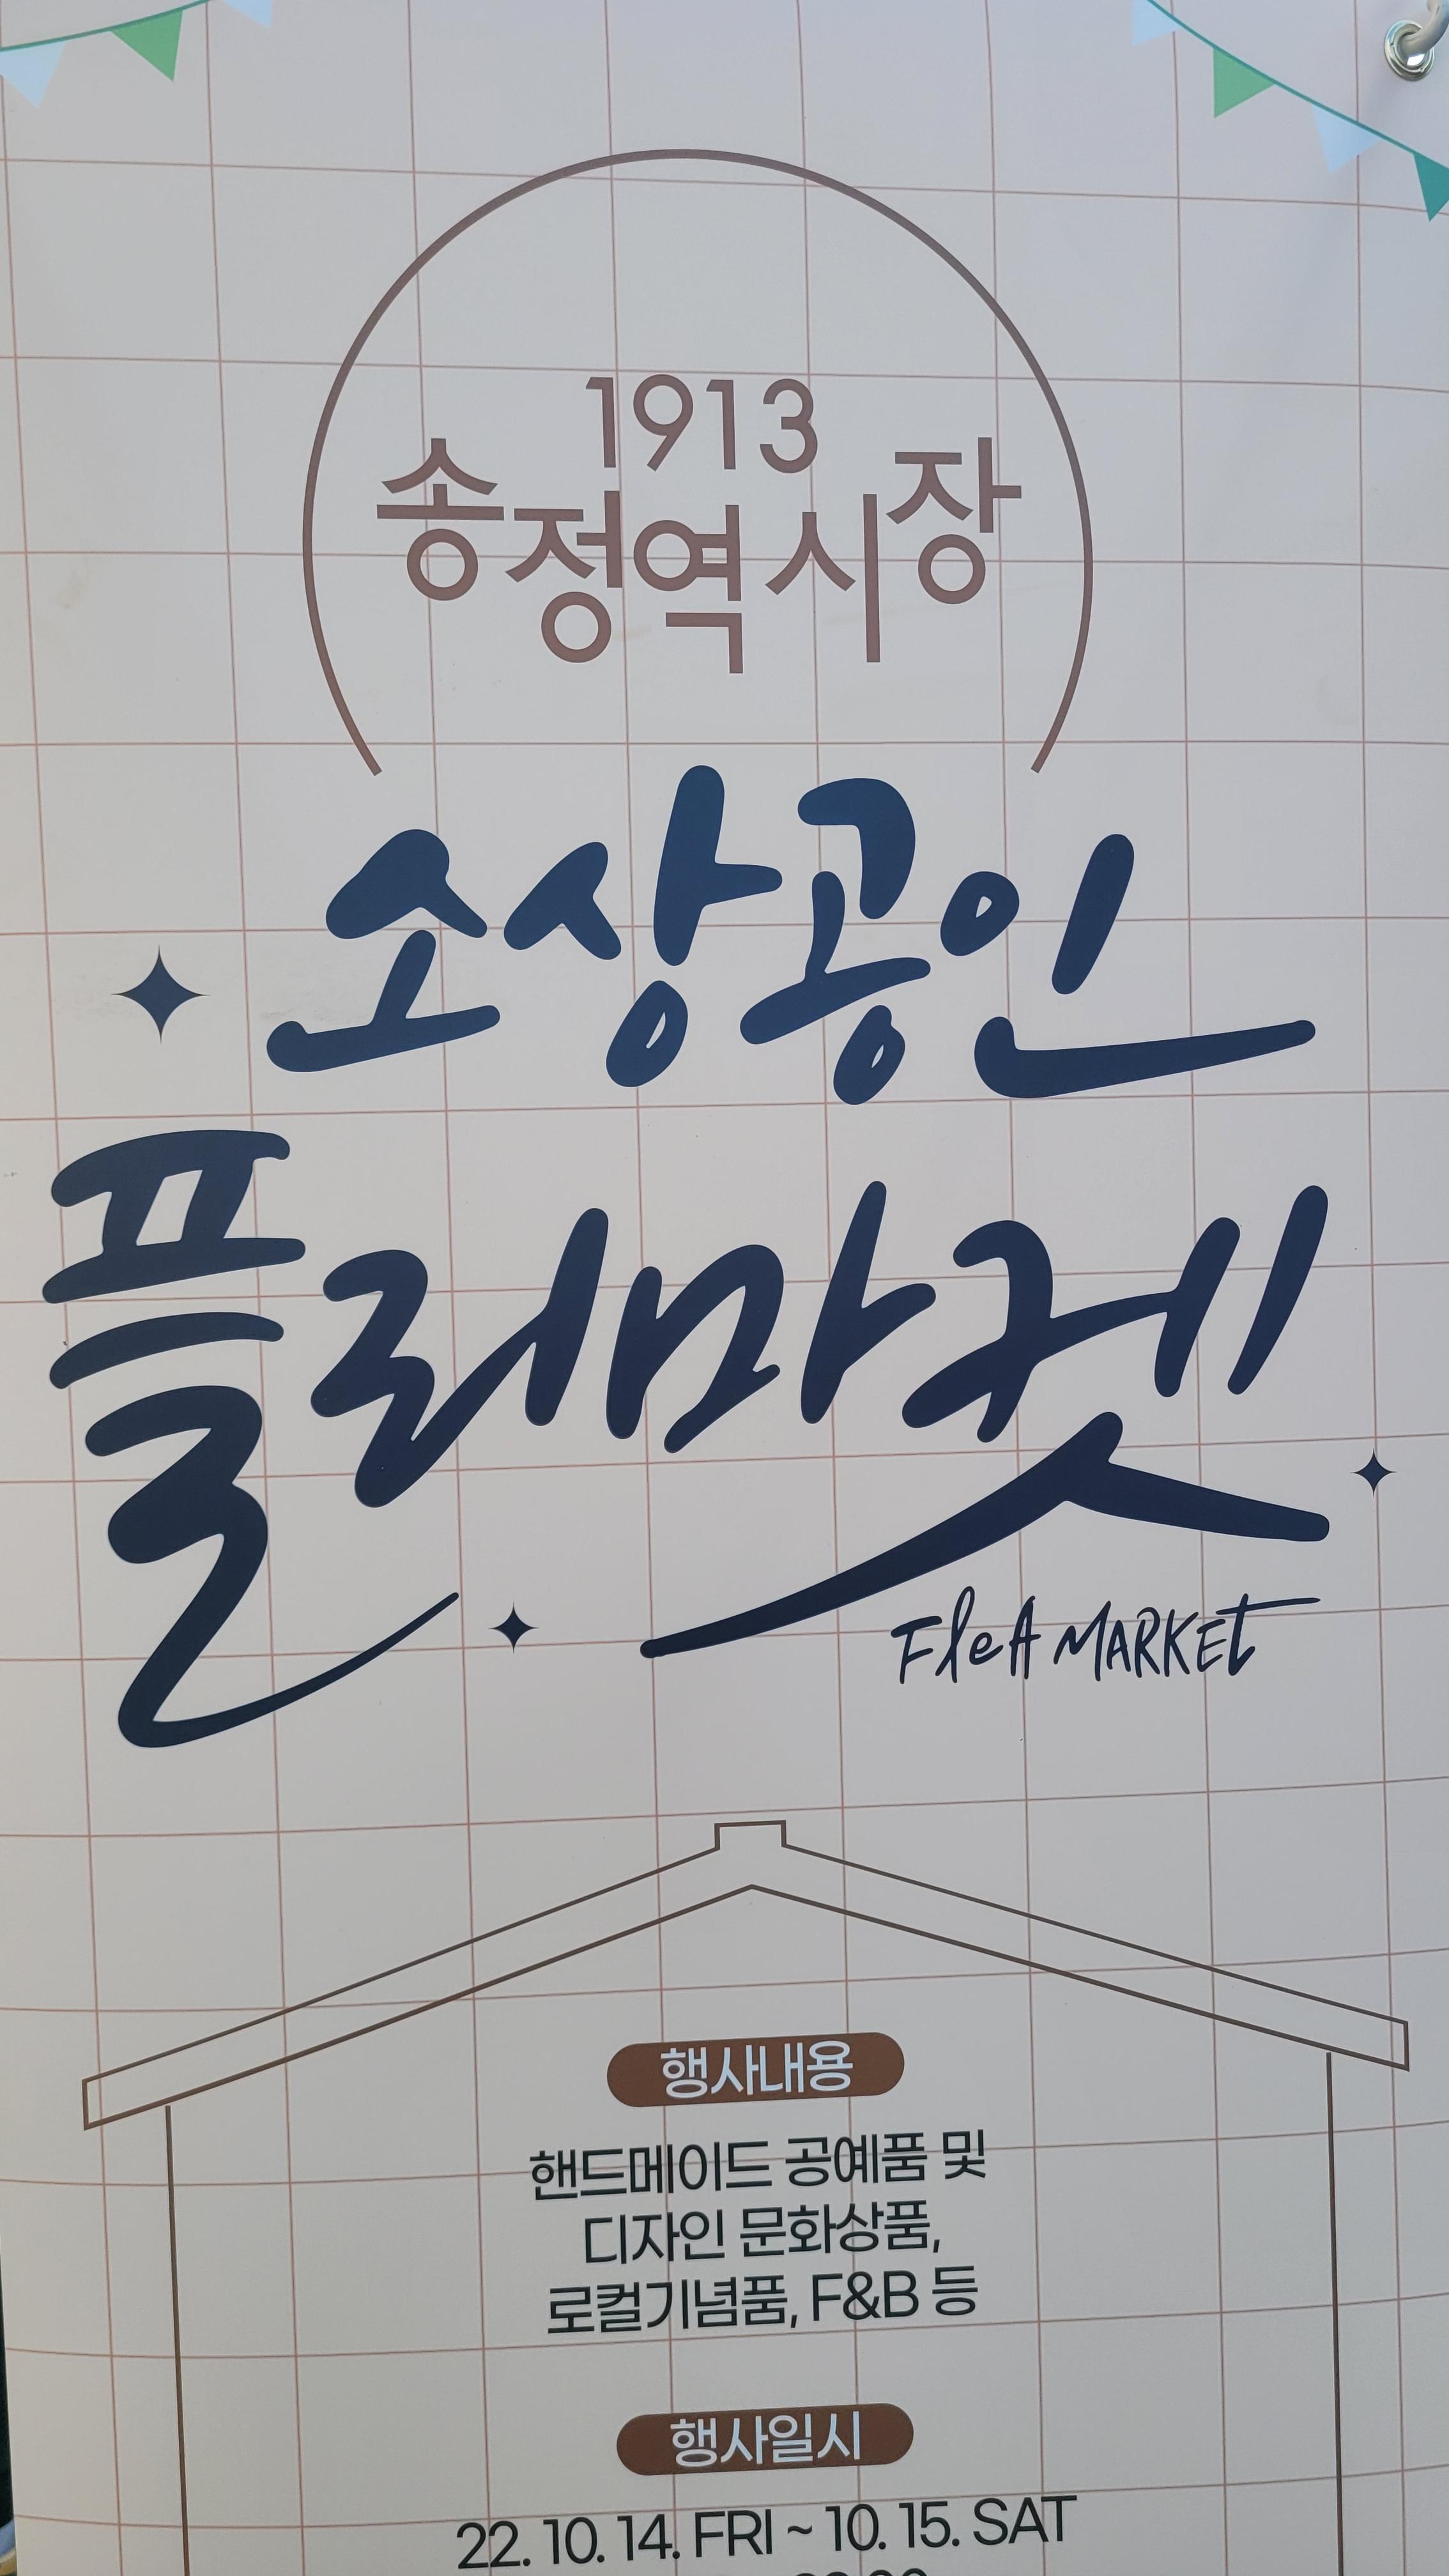 1913
송정역시장
소상공인
플리마켓
FleA MARKEt
행사내용
핸드메이드 공예품 및
디자인 문화상품,
로컬기념품, F&B 등
행사일시
22. 10. 14. FRI ~ 10. 15. SAT